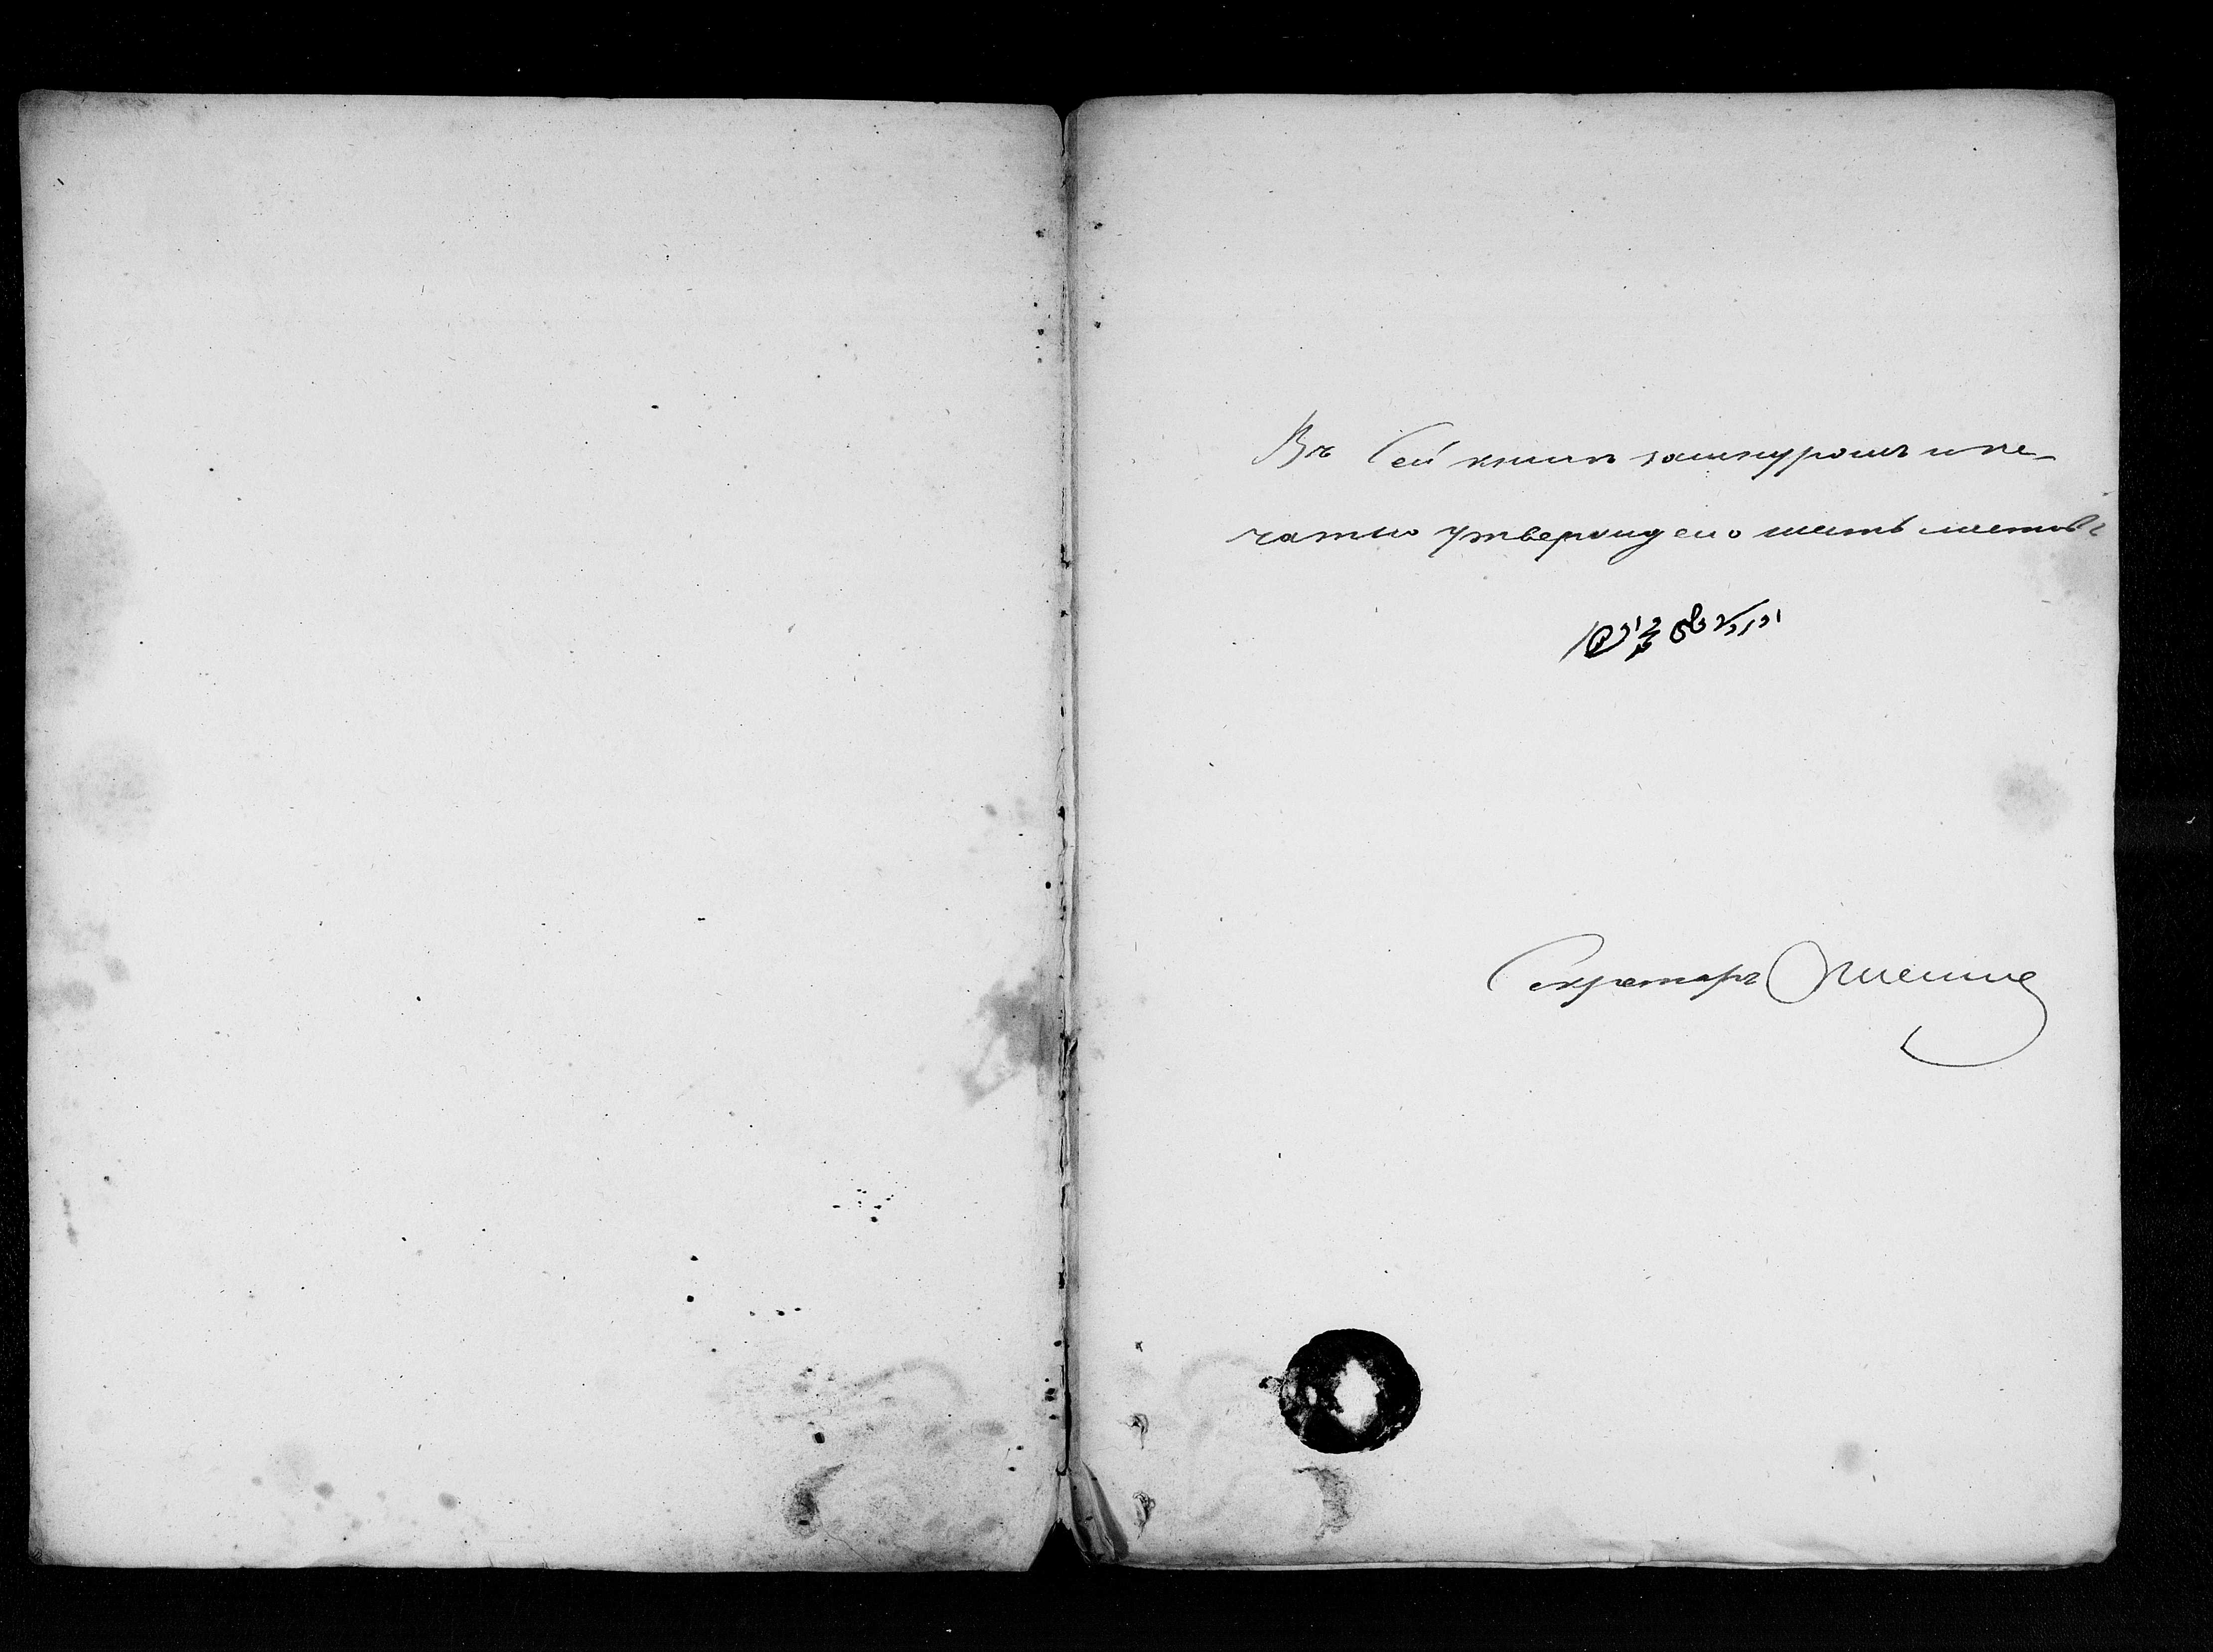 Въ Сей книгѣ зашнуромъ и пе-
чатью утверждено шесть листовъ
Секретарь